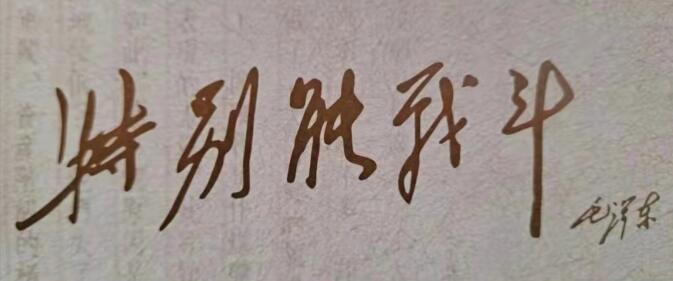 特别能战斗
毛泽东